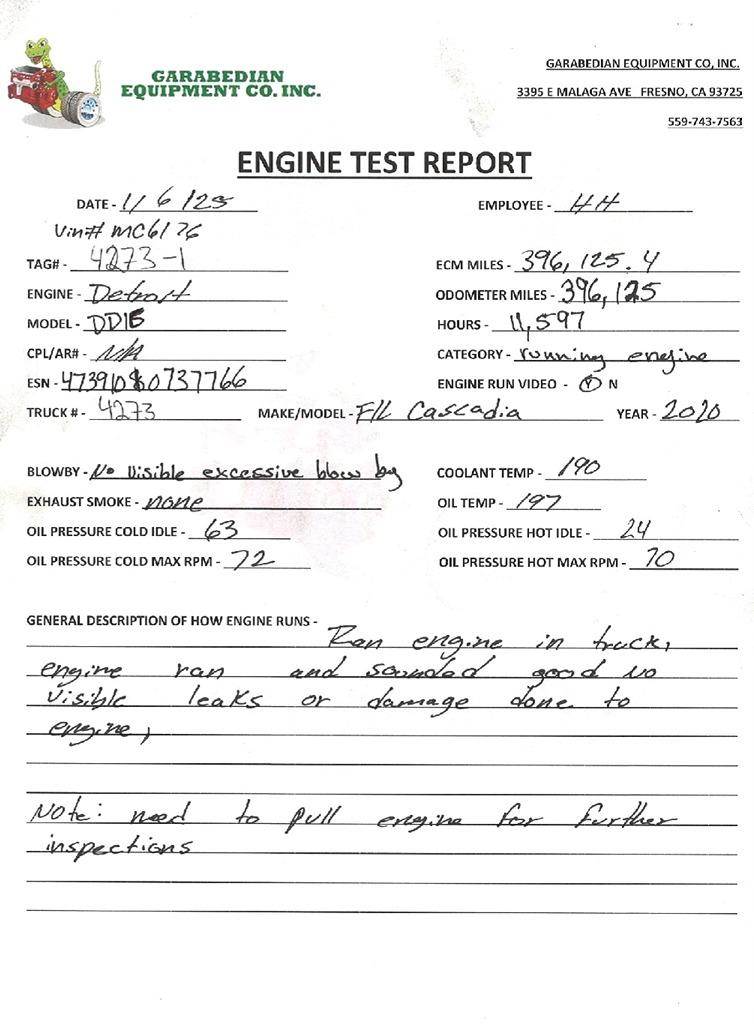 GARABEDIAN
EQUIPMENT CO. INC.
GARABEDIAN EQUIPMENT CO, INC.
3395 E MALAGA AVE FRESNO, CA 93725
559-743-7563
ENGINE TEST REPORT
DATE - 1/6/25 EMPLOYEE - HH
Vin# MC6176
TAG# - 4273-1 ECM MILES - 396,125.4
ENGINE - Detroit ODOMETER MILES - 396,125
MODEL - DD15 HOURS - 11,597
CPL/AR# - N/A CATEGORY - running engine
ESN - 473910S0737766 ENGINE RUN VIDEO - Y N
TRUCK # - 4273 MAKE/MODEL - F/L Cascadia YEAR - 2020
BLOWBY - No visible excessive blow by COOLANT TEMP - 190
EXHAUST SMOKE - none OIL TEMP - 197
OIL PRESSURE COLD IDLE - 63 OIL PRESSURE HOT IDLE - 24
OIL PRESSURE COLD MAX RPM - 72 OIL PRESSURE HOT MAX RPM - 70
GENERAL DESCRIPTION OF HOW ENGINE RUNS -
Ran engine in truck,
engine ran and sounded good no
visible leaks or damage done to
engine,
Note: need to pull engine for further
inspections